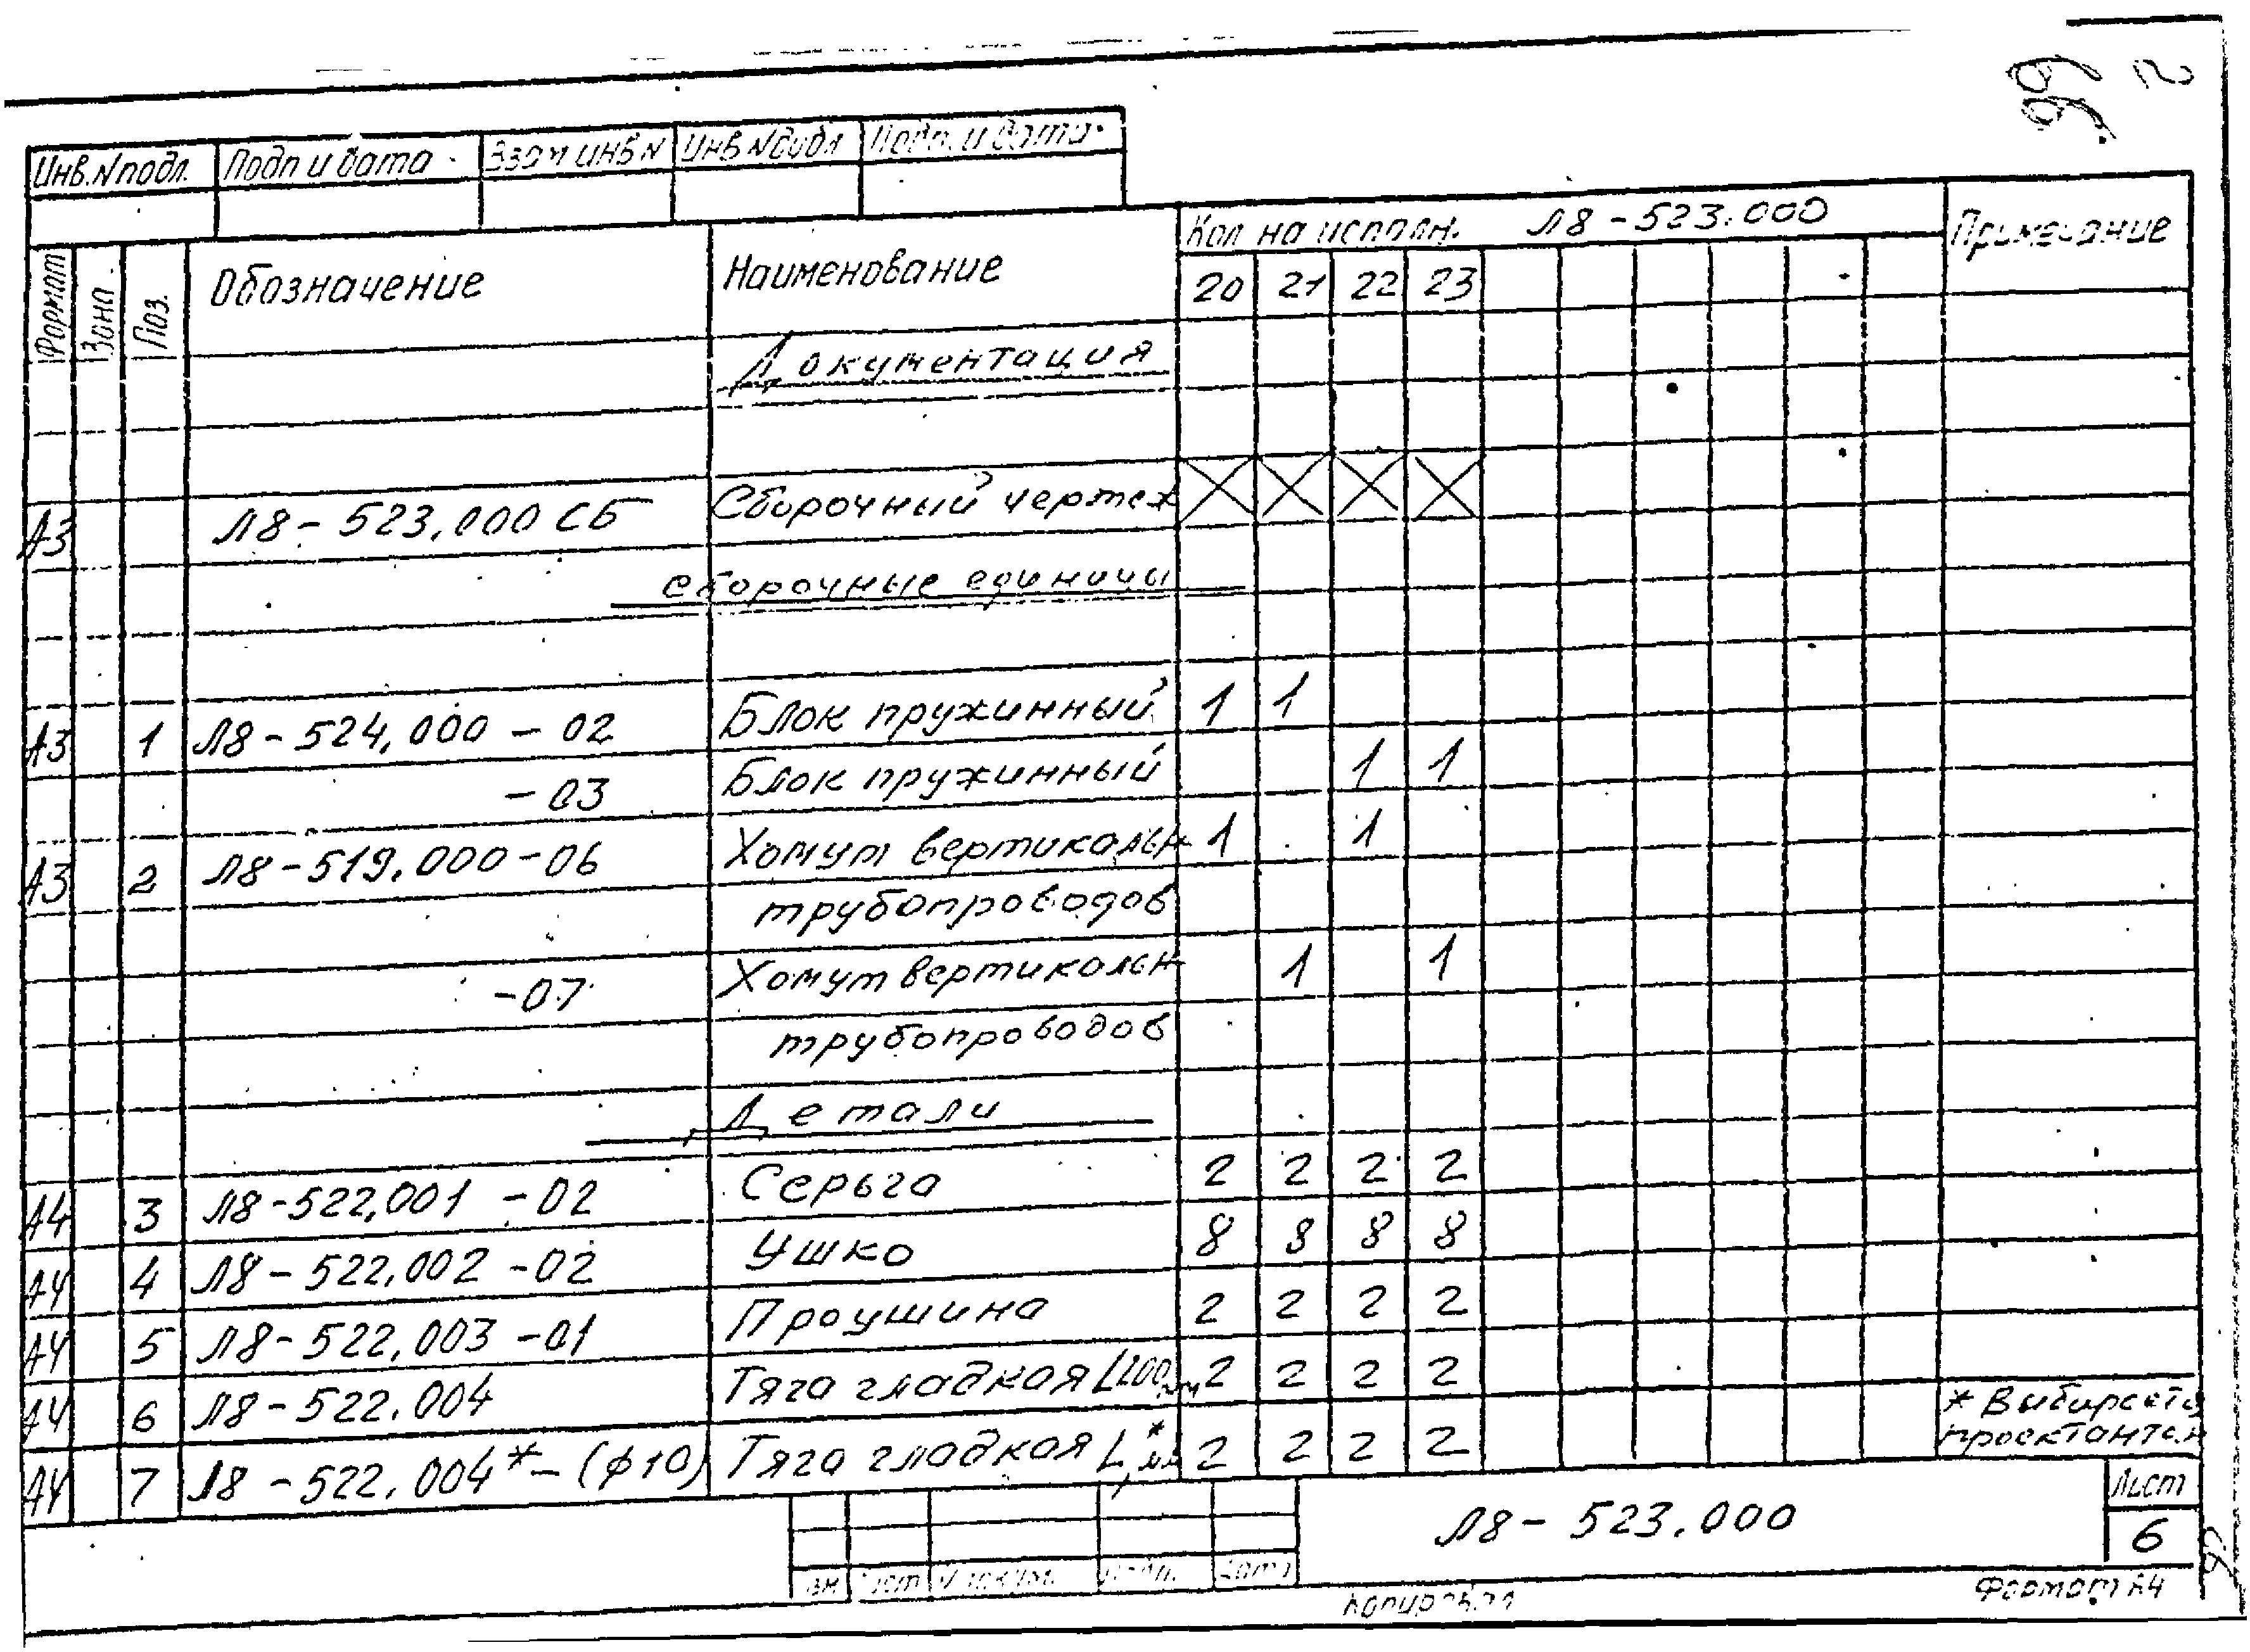 99
2
Инв.Nподл. Подп и дата Взам инв N Инв Nдубл Подп. и дата
Формат Зона Поз. Обозначение Наименование Кол на исполн. Л8-523.000 Примечание
20 21 22 23
Документация
А3 Л8-523.000 СБ Сборочный чертеж
Сборочные единицы
А3 1 Л8-524.000-02 Блок пружинный 1 1
-03 Блок пружинный 1 1
А3 2 Л8-519.000-06 Хомут вертикальн 1 1
трубопроводов
-07 Хомут вертикальн 1 1
трубопроводов
Детали
А4 3 Л8-522.001-02 Серьга 2 2 2 2
А4 4 Л8-522.002-02 Ушко 8 8 8 8
А4 5 Л8-522.003-01 Проушина 2 2 2 2
А4 6 Л8-522.004 Тяга гладкая L200мм 2 2 2 2
А4 7 Л8-522.004*-(ф10) Тяга гладкая L*,мм 2 2 2 2
* Выбирается
проектантом
Л8-523.000
Лист
6
Изм Лист N докум. Подп. Дата
Копировал Формат А4